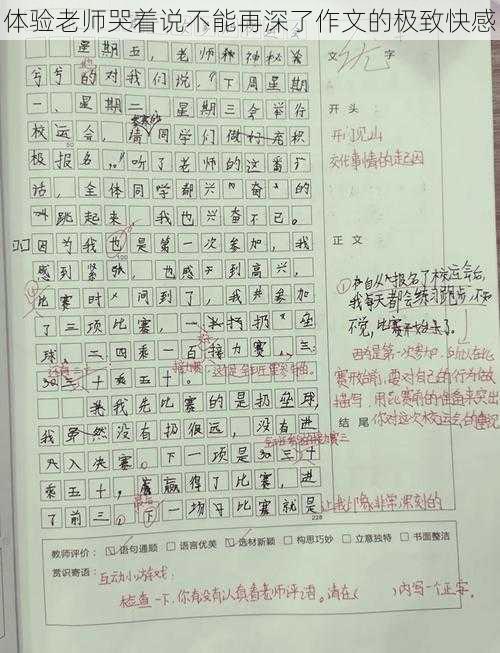 体验老师哭着说不能再深了作文的极致快感
星期五，老师神神秘秘
兮兮的对我们说，“下周星期
一、星期二、星期三会举行
校运会，请同学们做好积
极报名。”听了老师的这番
话，全体同学都兴奋的
叫跳起来，我也兴奋不已。
因为我也是第一次参加，我
感到紧张，也感到高兴，
比赛时间到了，我共参加
了三项比赛，一是扔垒
球，二四乘一百接力赛，三
30三十乘五十。
我先比赛的是扔垒球，
我虽然没有扔很远，没有进
入决赛。下一项是30三十
乘五十，赢得了比赛，进
了前三。下一场比赛就是
228
文字
开头
开门见山
交代事情的起因
正文
①自从报名了校运会后，
我每天都会练习跑步，不知
不觉，比赛开始来了。
因为是第一次参加，所以在比
赛开始前，要对自己的行为做
描写，用忍赛前的准备来突出
你对这次校运会的重视
结尾
让我们都非常深刻的
教师评价：☑语句通顺 □语言优美 ☑选材新颖 □构思巧妙 □立意独特 □书面整洁
赏识寄语：互动小游戏：
检查一下，你有没有认真看老师评语。请在（ ）内写一个正字。